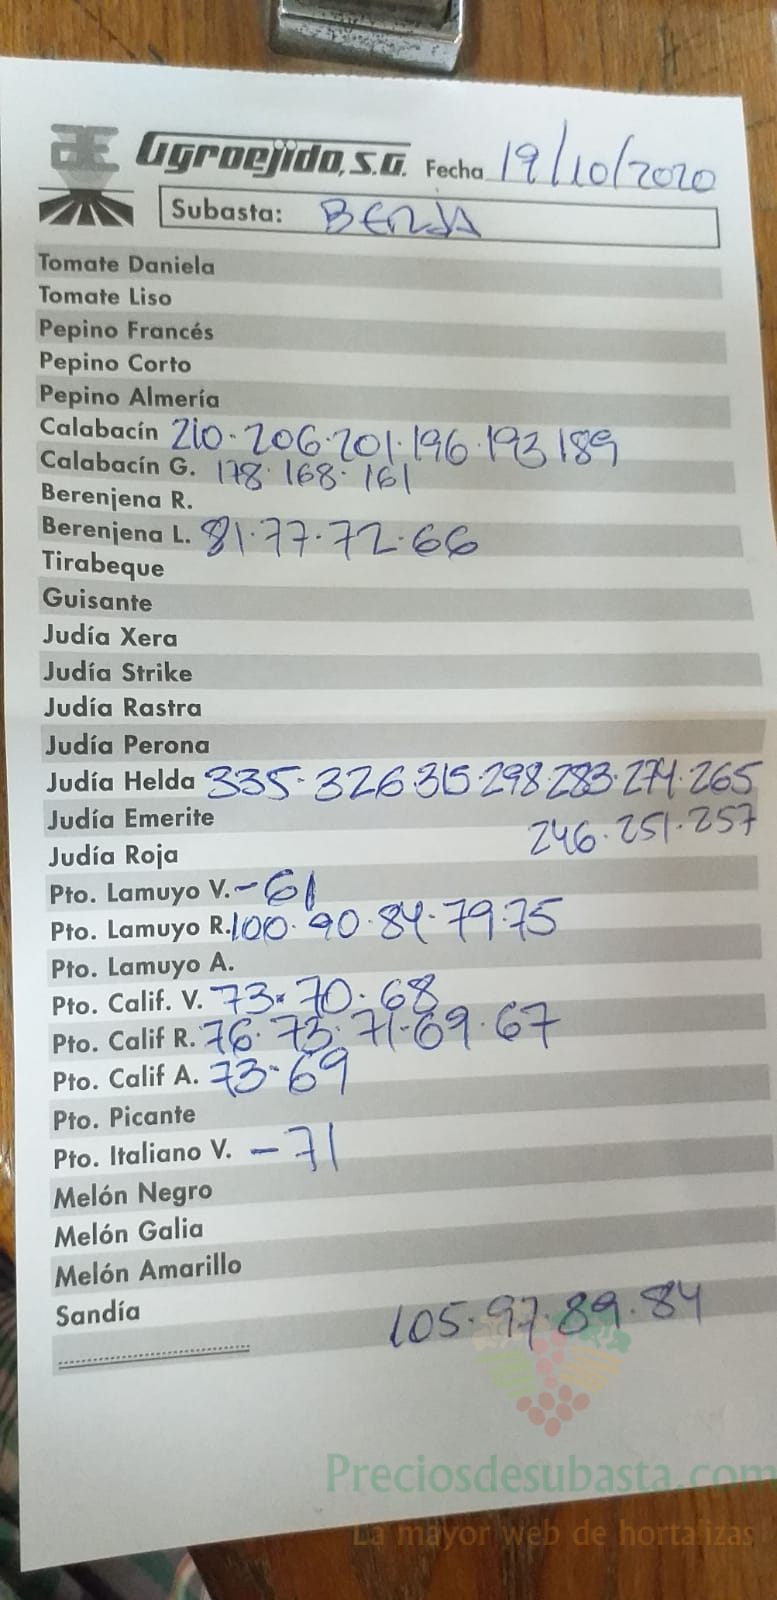 AE Agroejido, S.A. Fecha 19/10/2020
Subasta: BERJA
Tomate Daniela
Tomate Liso
Pepino Francés
Pepino Corto
Pepino Almería
Calabacín 210. 206. 201. 196. 193 189
Calabacín G. 178. 168. 161
Berenjena R.
Berenjena L. 81. 77. 72. 66
Tirabeque
Guisante
Judía Xera
Judía Strike
Judía Rastra
Judía Perona
Judía Helda 335. 326 315. 298. 283. 274. 265
Judía Emerite 246. 251. 257
Judía Roja
Pto. Lamuyo V. - 61
Pto. Lamuyo R. 100. 90. 84. 79. 75
Pto. Lamuyo A.
Pto. Calif. V. 73. 70. 68
Pto. Calif R. 76. 73. 71. 69. 67
Pto. Calif A. 73. 69
Pto. Picante
Pto. Italiano V. - 71
Melón Negro
Melón Galia
Melón Amarillo
Sandía 105. 97. 89. 84
Preciosdesubasta.com
La mayor web de hortalizas